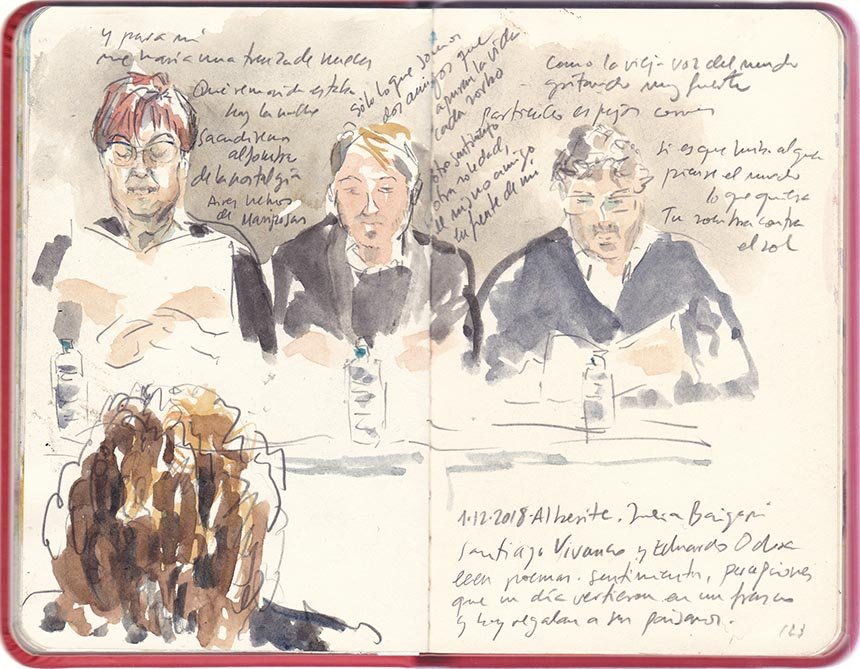 Y para mí
me haría una trenza de
Que removida estaba
hoy la noche
Sacudiremos
alfombra
de la nostalgia
Aires llenos
de Mariposas
Sólo lo que somos
dos amigos que
apuran la vida
cada sorbo
otro sentimiento
otra soledad,
el mismo amigo
en frente de mi
Como la vieja voz del mundo
gritando muy fuerte
Particulas espejos
si es que hubo algo
piense el mundo
lo que quiera
Tu sombra contra
el sol
1·12·2018·Alberite.
Santiago Vivanco y Eduardo
leen poemas. sentimientos, percepciones
que un día vertieron en un frasco
y hoy regalan a sus paisanos.